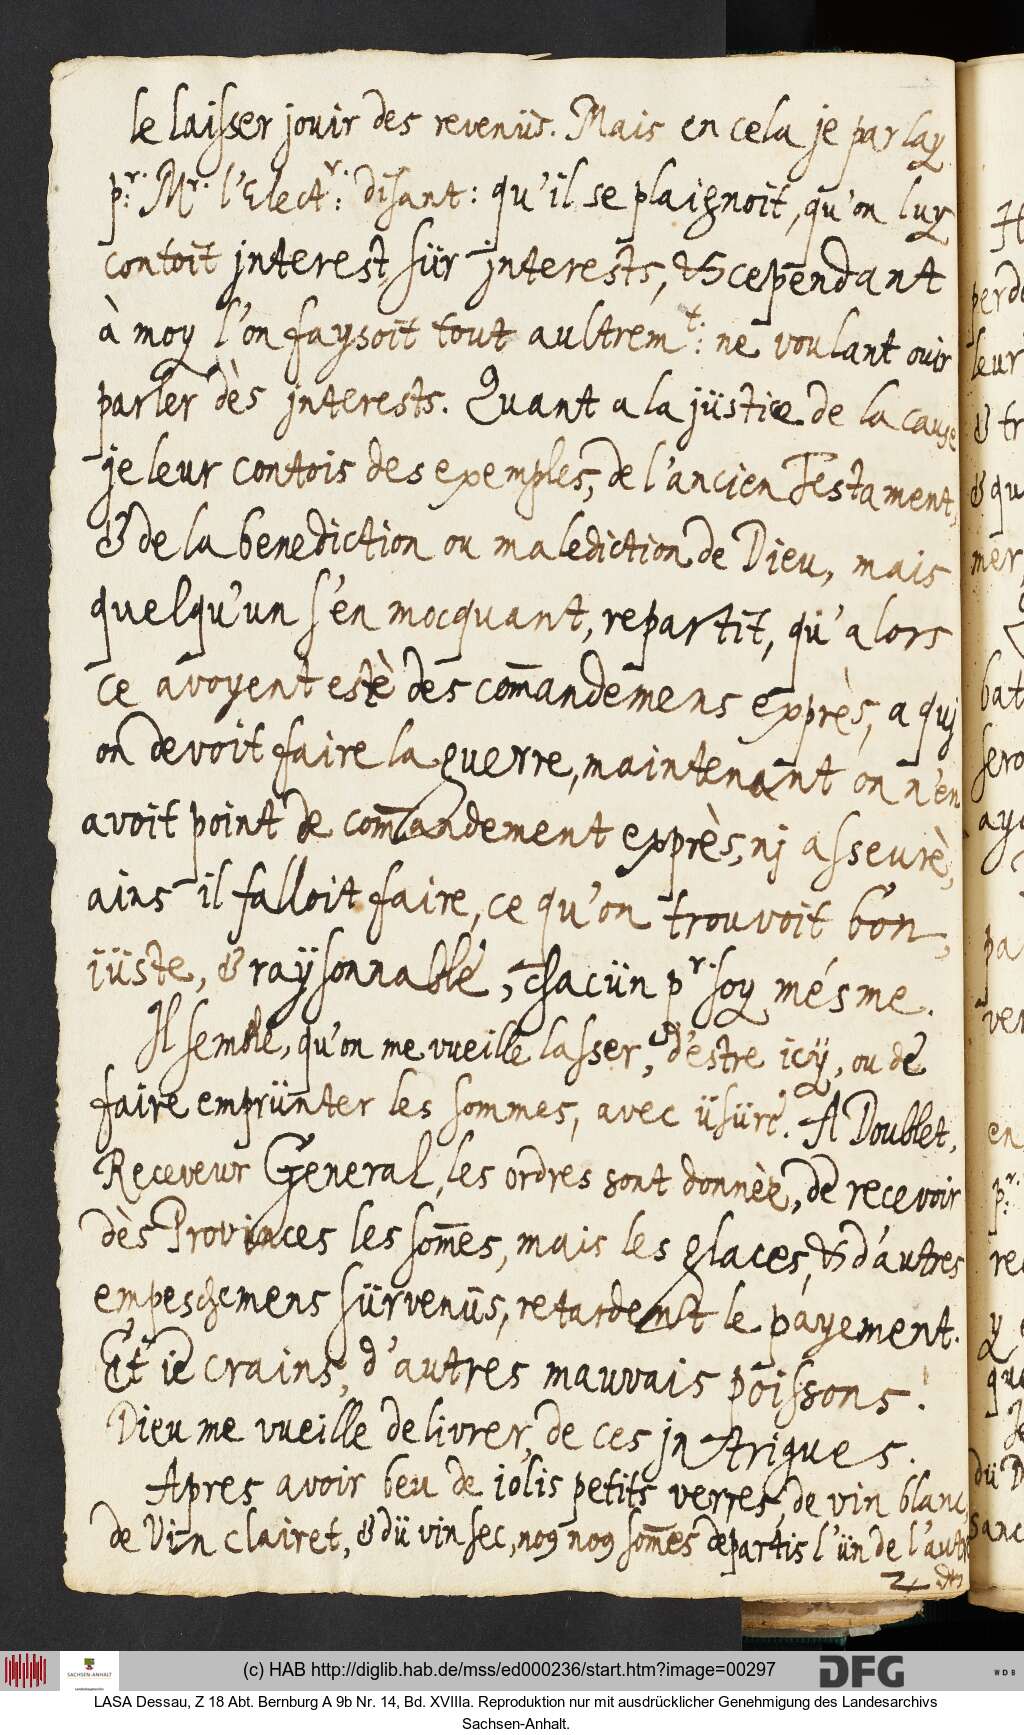 le laisser jouir des revenüs. Mais en cela je parlay
p:r. Mr. l'Elect:r. disant: qu'il se plaignoit, qu'on luy
contoit jnterest, sür jnterests, & cependant
à moy l'on faysoit tout aultrem:t: ne voulant ouir
parler dès jnterests. Quant a la jüstice de la cause
je leur contois des exemples, de l'ancien Testament,
& de la benediction ou malediction de Dieu, mais
quelqu'un s'en mocquant, repartit, qü'alors
ce avoyent estè des com̄andemens exprès, a quj
on devoit faire la guerre, maintenant on n'en
avoit point de com̄andement exprès, nj asseurè,
ains il falloit faire, ce qu'on trouvoit bon,
iüste, & raÿsonnable, chacün pr. soy mésme.
Il semble, qu'on me vueille lasser, d'estre icÿ, ou de
faire emprünter les sommes, avec üsüre. A Doublet,
Receveur General, les ordres sont donnèz, de recevoir
dès Provinces les som̄es, mais les glaces, & d'autres
empeschemens sürvenüs, retardent le payement.
Et ie crains, d'autres mauvais poissons!
Dieu me vueille delivrer, de ces jntrigues.
Apres avoir beu de iolis petits verres, de vin blanc,
de Vin clairet, & dü vin sec, no9 no9 som̄es departis l'ün de l'autre
(c) HAB http://diglib.hab.de/mss/ed000236/start.htm?image=00297
SACHSEN-ANHALT
DFG
WDB
LASA Dessau, Z 18 Abt. Bernburg A 9b Nr. 14, Bd. XVIIIa. Reproduktion nur mit ausdrücklicher Genehmigung des Landesarchivs
Sachsen-Anhalt.